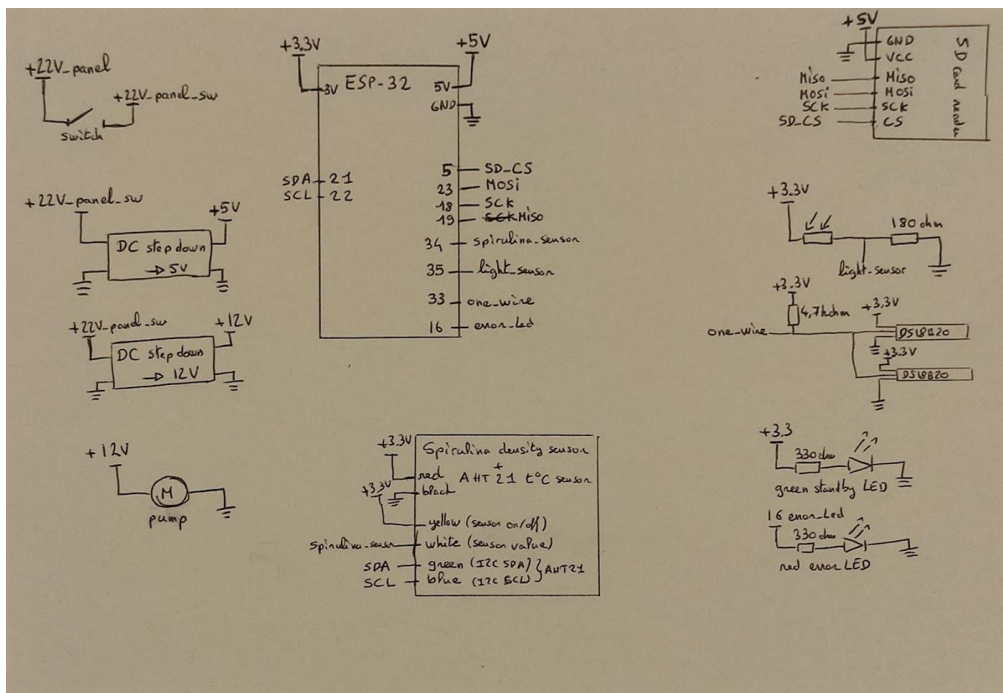 +22V_panel
+22V_panel_sw
switch
+22V_panel_sw
+5V
DC step down
→ 5V
+22V_panel_sw
+12V
DC step down
→ 12V
+12V
M
pump
+3.3V
+5V
ESP-32
3V
5V
GND
SDA 21
SCL 22
5 SD_CS
23 MOSi
18 SCK
19 SCK Miso
34 spirulina_sensor
35 light_sensor
33 one_wire
16 error_led
+3.3V
Spirulina density sensor
+
red AHT21 t°C sensor
+3.3V
black
yellow (sensor on/off)
spirulina_sensor white (sensor value)
SDA green (I2C SDA)
SCL blue (I2C SCL)
} AHT21
+5V
GND
VCC
Miso Miso
MOSi MOSi
SCK SCK
SD_CS CS
SD card reader
+3.3V
180 ohm
light_sensor
+3.3V
4,7kohm
+3,3V
one_wire
DS18B20
+3.3V
DS18B20
+3.3
330 ohm
green standby LED
16 error_led
330 ohm
red error LED